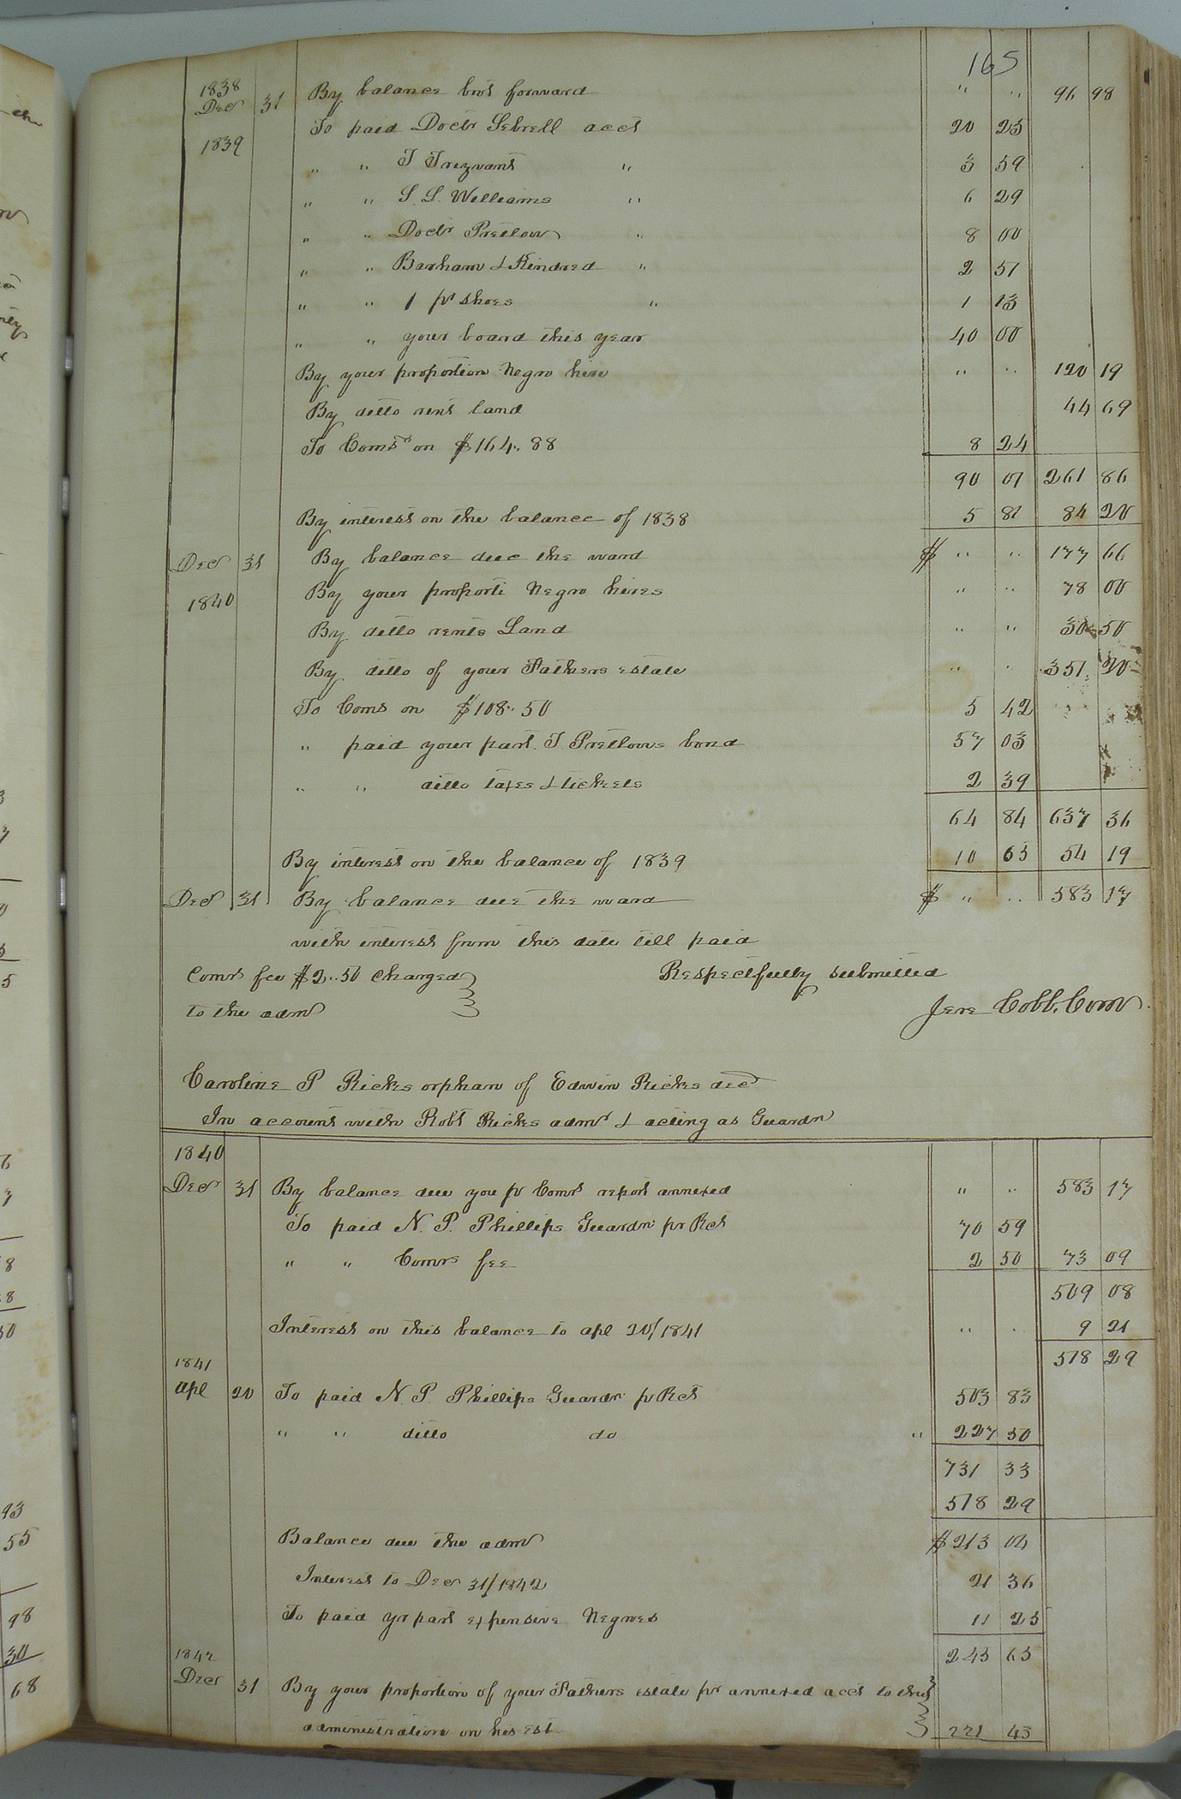 165
1838 Decr 31 By balance brot forward " " 96 98
1839 To paid Doctr Sebrell acct 20 25
" " T Trezvant " 3 59
" " S. S. Williams " 6 29
" " Doctr Pretlow " 8 00
" " Barham & Kindred " 2 57
" " 1 pr shoes " 1 13
" " your board this year 40 00
By your proportion Negro hire " " 120 19
By ditto rent land 44 69
To Comss on $164.. 88 8 24
90 07 261 86
By interest on the balance of 1838 5 81 84 20
Decr 31 By balance due the ward $ " " 177 66
1840 By your proporti Negro hires " " 78 00
By ditto rents Land " " 30 50
By ditto of your Fathers estate " " 351 20
To Coms on $108.. 50 5 42
" paid your part. T. Pretlows bond 57 03
" " ditto taxes & tickets 2 39
64 84 637 36
By interest on the balance of 1839 10 65 54 19
Decr 31 By balance due the ward $ " " 583 17
with interest from this date till paid
Comrs fee $2..50 Charged
to the admr
Respectfully submitted
Jere Cobb, Comr
Caroline P Ricks orphan of Edwin Ricks decd
In account with Robt Ricks admr & acting as Guardn
1840
Decr 31 By balance due you pr Comrs report annexed " " 583 17
To paid N. P. Phillips Guardn pr Rct 70 59
" " Comrs fee 2 50 73 09
509 08
Interest on this balance to apl 20/1841 " " 9 21
518 29
1841
apl 20 To paid N. P. Phillips Guardn pr Rct 503 83
" " ditto do " 227 50
731 33
518 29
Balance due the admr $213 04
Interest to Decr 31/1842 21 36
To paid yr part expensive Negroes 11 25
245 65
1842
Decr 31 By your proportion of your Fathers estate pr annexed acct to this
administration on his est 221 43